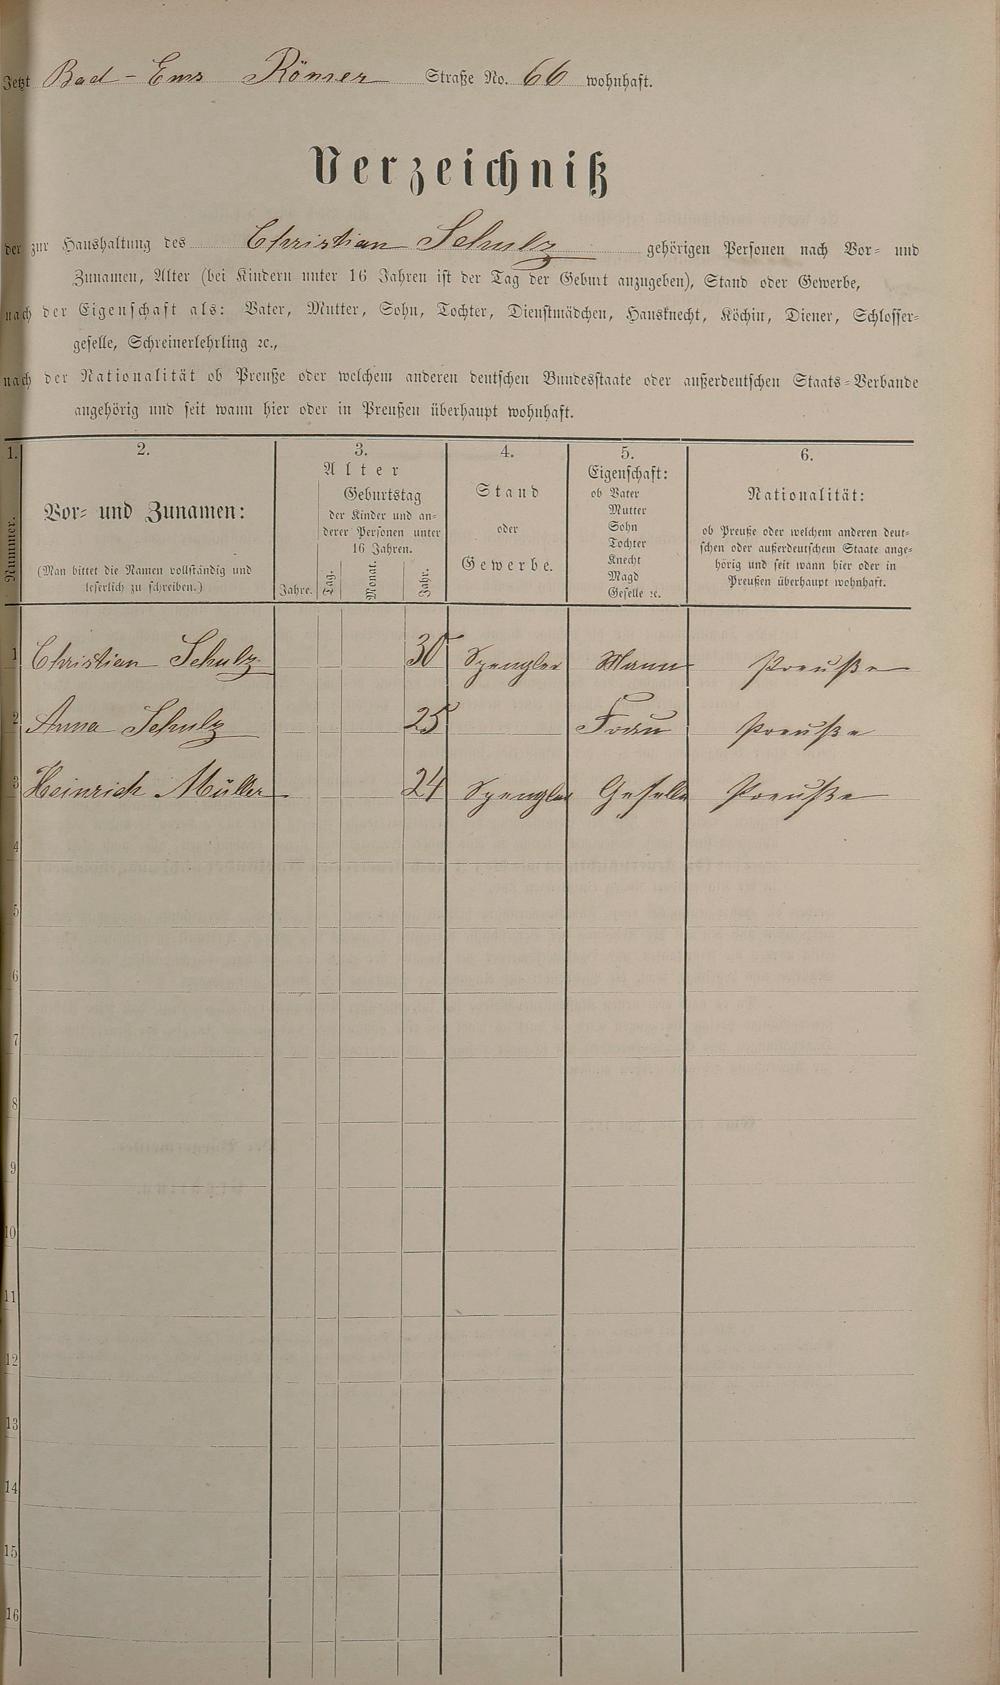 Jetzt Bad-Ems Römer Straße No. 66 wohnhaft.
Verzeichniß
der zur Haushaltung des Christian Schulz gehörigen Personen nach Vor- und
Zunamen, Alter (bei Kindern unter 16 Jahren ist der Tag der Geburt anzugeben), Stand oder Gewerbe,
nach der Eigenschaft als: Vater, Mutter, Sohn, Tochter, Dienstmädchen, Hausknecht, Köchin, Diener, Schlosser-
geselle, Schreinerlehrling ꝛc.,
nach der Nationalität ob Preuße oder welchem anderen deutschen Bundesstaate oder außerdeutschen Staats-Verbande
angehörig und seit wann hier oder in Preußen überhaupt wohnhaft.
1.
Nummer.
2.
Vor- und Zunamen:
(Man bittet die Namen vollständig und
leserlich zu schreiben.)
3.
Alter
Geburtstag
der Kinder und an-
derer Personen unter
16 Jahren.
Jahre.
Tag.
Monat.
Jahr.
4.
Stand
oder
Gewerbe.
5.
Eigenschaft:
ob Vater
Mutter
Sohn
Tochter
Knecht
Magd
Geselle ꝛc.
6.
Nationalität:
ob Preuße oder welchem anderen deut-
schen oder außerdeutschem Staate ange-
hörig und seit wann hier oder in
Preußen überhaupt wohnhaft.
1 Christian Schulz 30 Spengler Mann Preuße
2 Anna Schulz 25 Frau Preuße
3 Heinrich Müller 24 Spengler Geselle Preuße
4
5
6
7
8
9
10
11
12
13
14
15
16